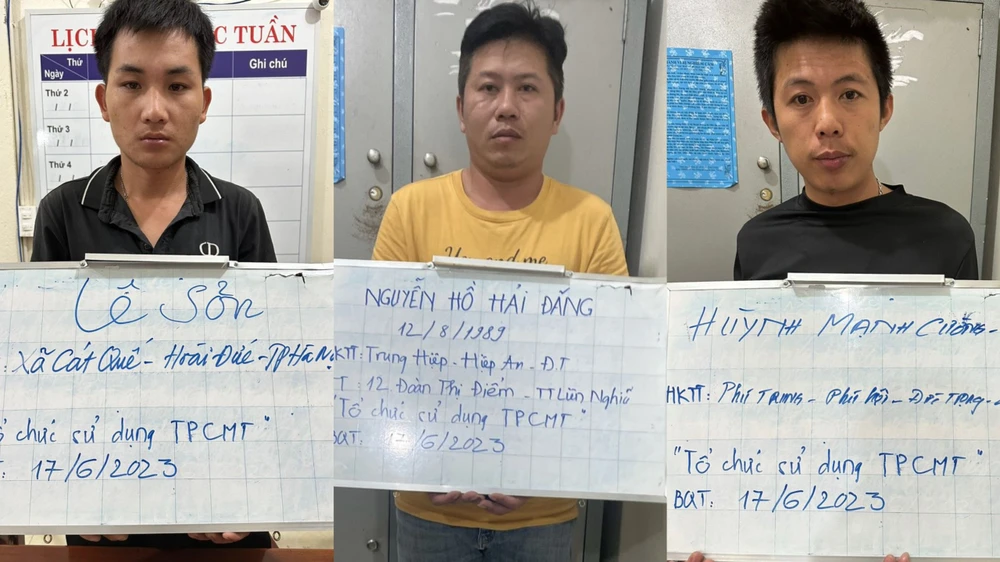 LỊCH
C TUẦN
Thứ
Ngày
Ghi chú
Thứ 2
/ /
Thứ 3
/ /
Thứ 4
Lê Sơn
: Xã Cát Quế - Hoài Đức - TP Hà Nội
chức sử dụng TPCMT"
: 17/6/2023
You and me
NGUYỄN HỒ HẢI ĐĂNG
12/8/1989
KTT: Trung Hiệp - Hiệp An - Đ.T
T: 12 Đoàn Thị Điểm - TT Liên Nghĩa
"Tổ chức sử dụng TPCMT"
BQT: 17/6/2023
HUỲNH MẠNH CƯỜNG
HKTT: Phú Trung - Phú Hội - Đức Trọng -
"Tổ chức sử dụng TPCMT"
BQT: 17/6/2023